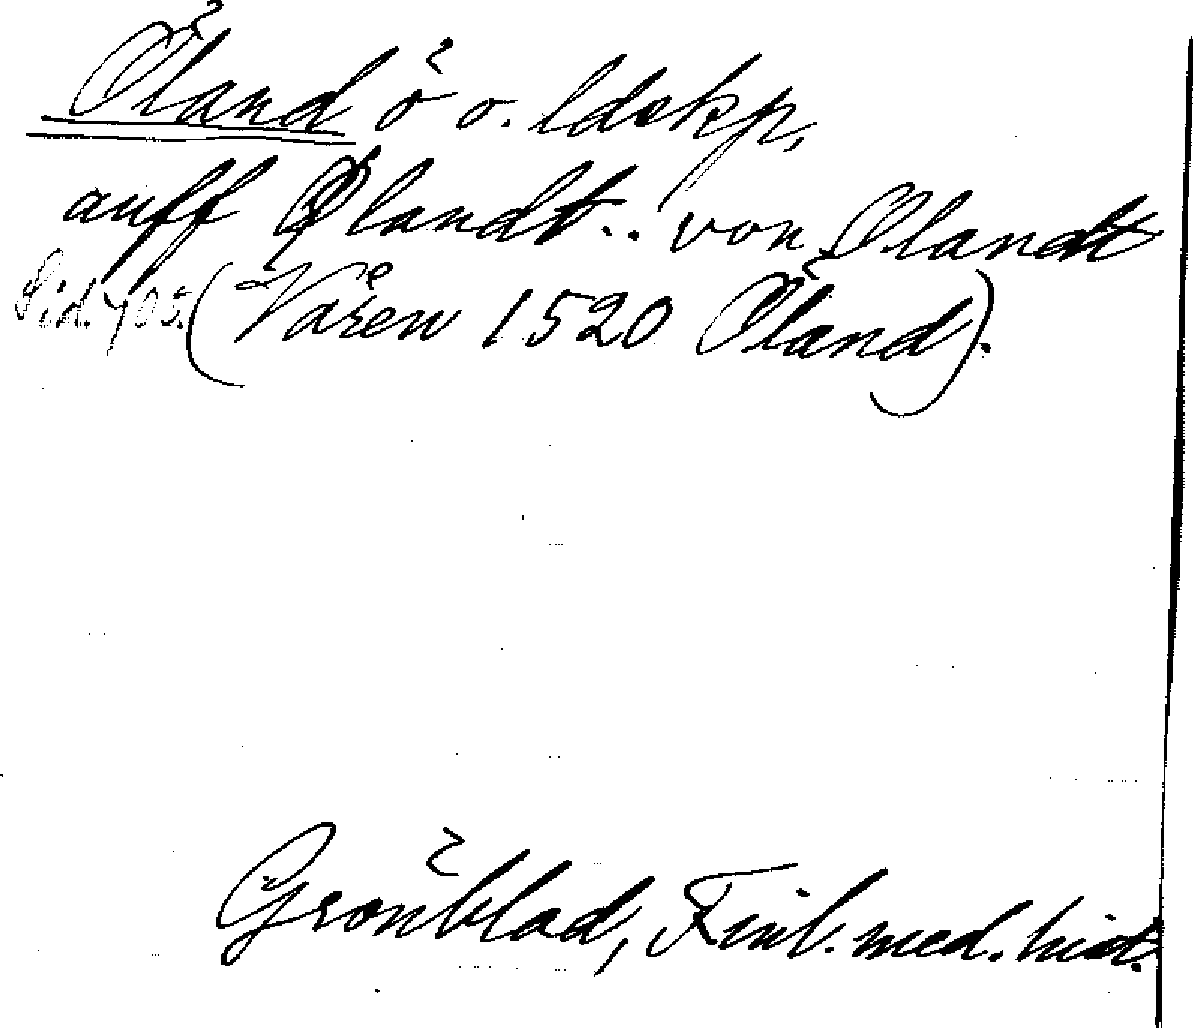 Öland ö o. ldskp,
auff Ølandt .. von Olandt
Sid. 705. (Våren 1520 Öland).
Grönblad, Finl. med. hist.